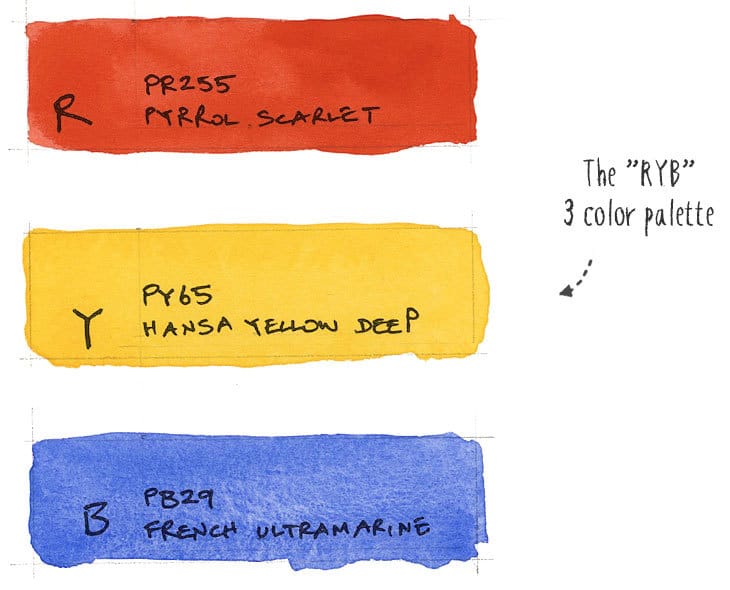 R
PR255
PYRROL SCARLET
The "RYB"
3 color palette
Y
PY65
HANSA YELLOW DEEP
B
PB29
FRENCH ULTRAMARINE